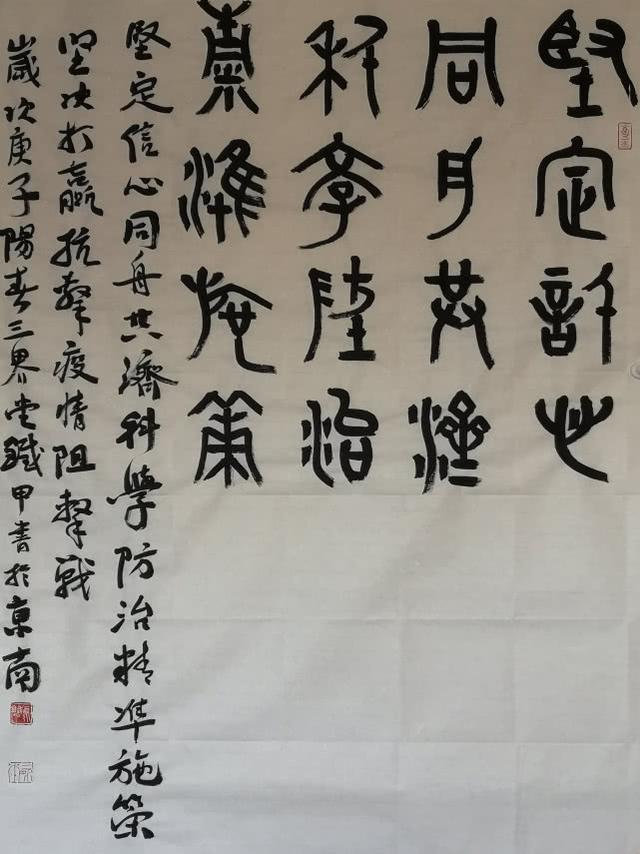 堅定信心
同舟共濟
科學防治
精準施策
堅定信心同舟共濟科學防治精準施策
坚决打赢抗擊疫情阻擊戰
歲次庚子陽春三界堂鐵甲書於京南